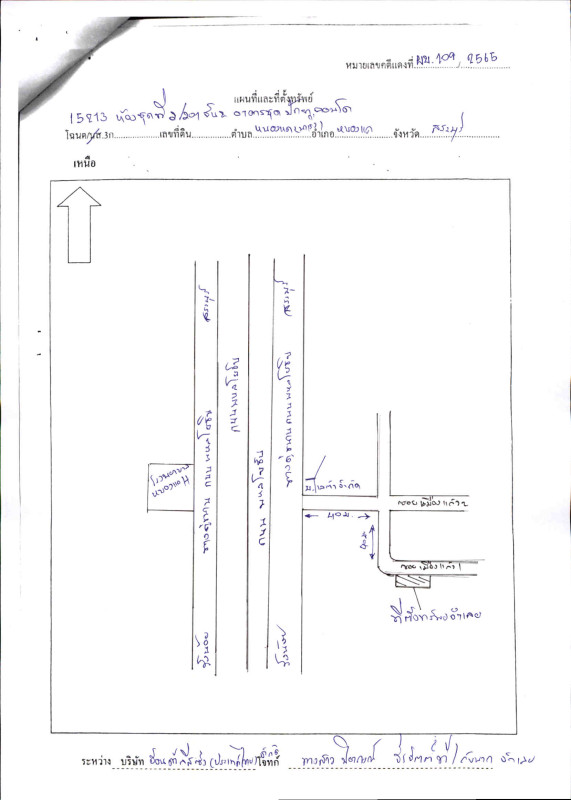 หมายเลขคดีแดงที่ ผบ. 109, 2565
แผนที่และที่ตั้งทรัพย์
15213 ห้องชุดที่ 2/201 ชั้น 2 อาคารชุด
โฉนด/นส.3ก. เลขที่ดิน ตำบล หนองแค อำเภอ หนองแค จังหวัด สระบุรี
เหนือ
สระบุรี
สระบุรี
ถนนพหลโยธิน
ถนน พหลโยธิน
ทางคู่ขนาน ถนน พหลโยธิน
ทางคู่ขนาน ถนน พหลโยธิน
โรงพยาบาล
หนองแค
จำกัด
ซอย เมืองแก้ว 2
40 ม.
40 ม.
ซอย เมืองแก้ว 1
ที่ตั้งทรัพย์จำเลย
วังน้อย
วังน้อย
ระหว่าง บริษัท ฮอนด้า ลีสซิ่ง (ประเทศไทย) จำกัด โจทก์ นางสาว กับพวก จำเลย